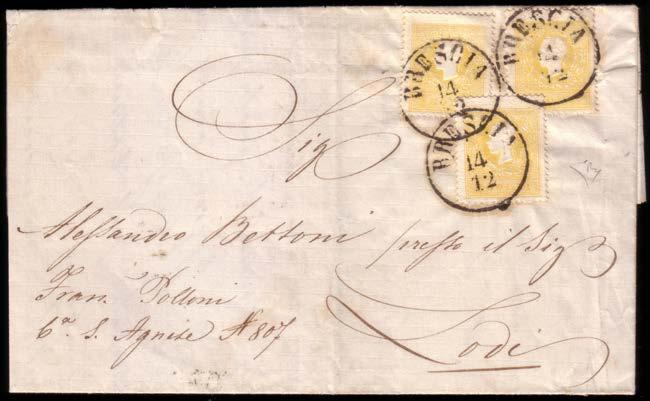 BRESCIA
14
12
BRESCIA
14
12
BRESCIA
14
12
Sig
Alessandro Bettoni presso il Sig
Fran. Polloni
Cª S. Agnese N 807
Lodi